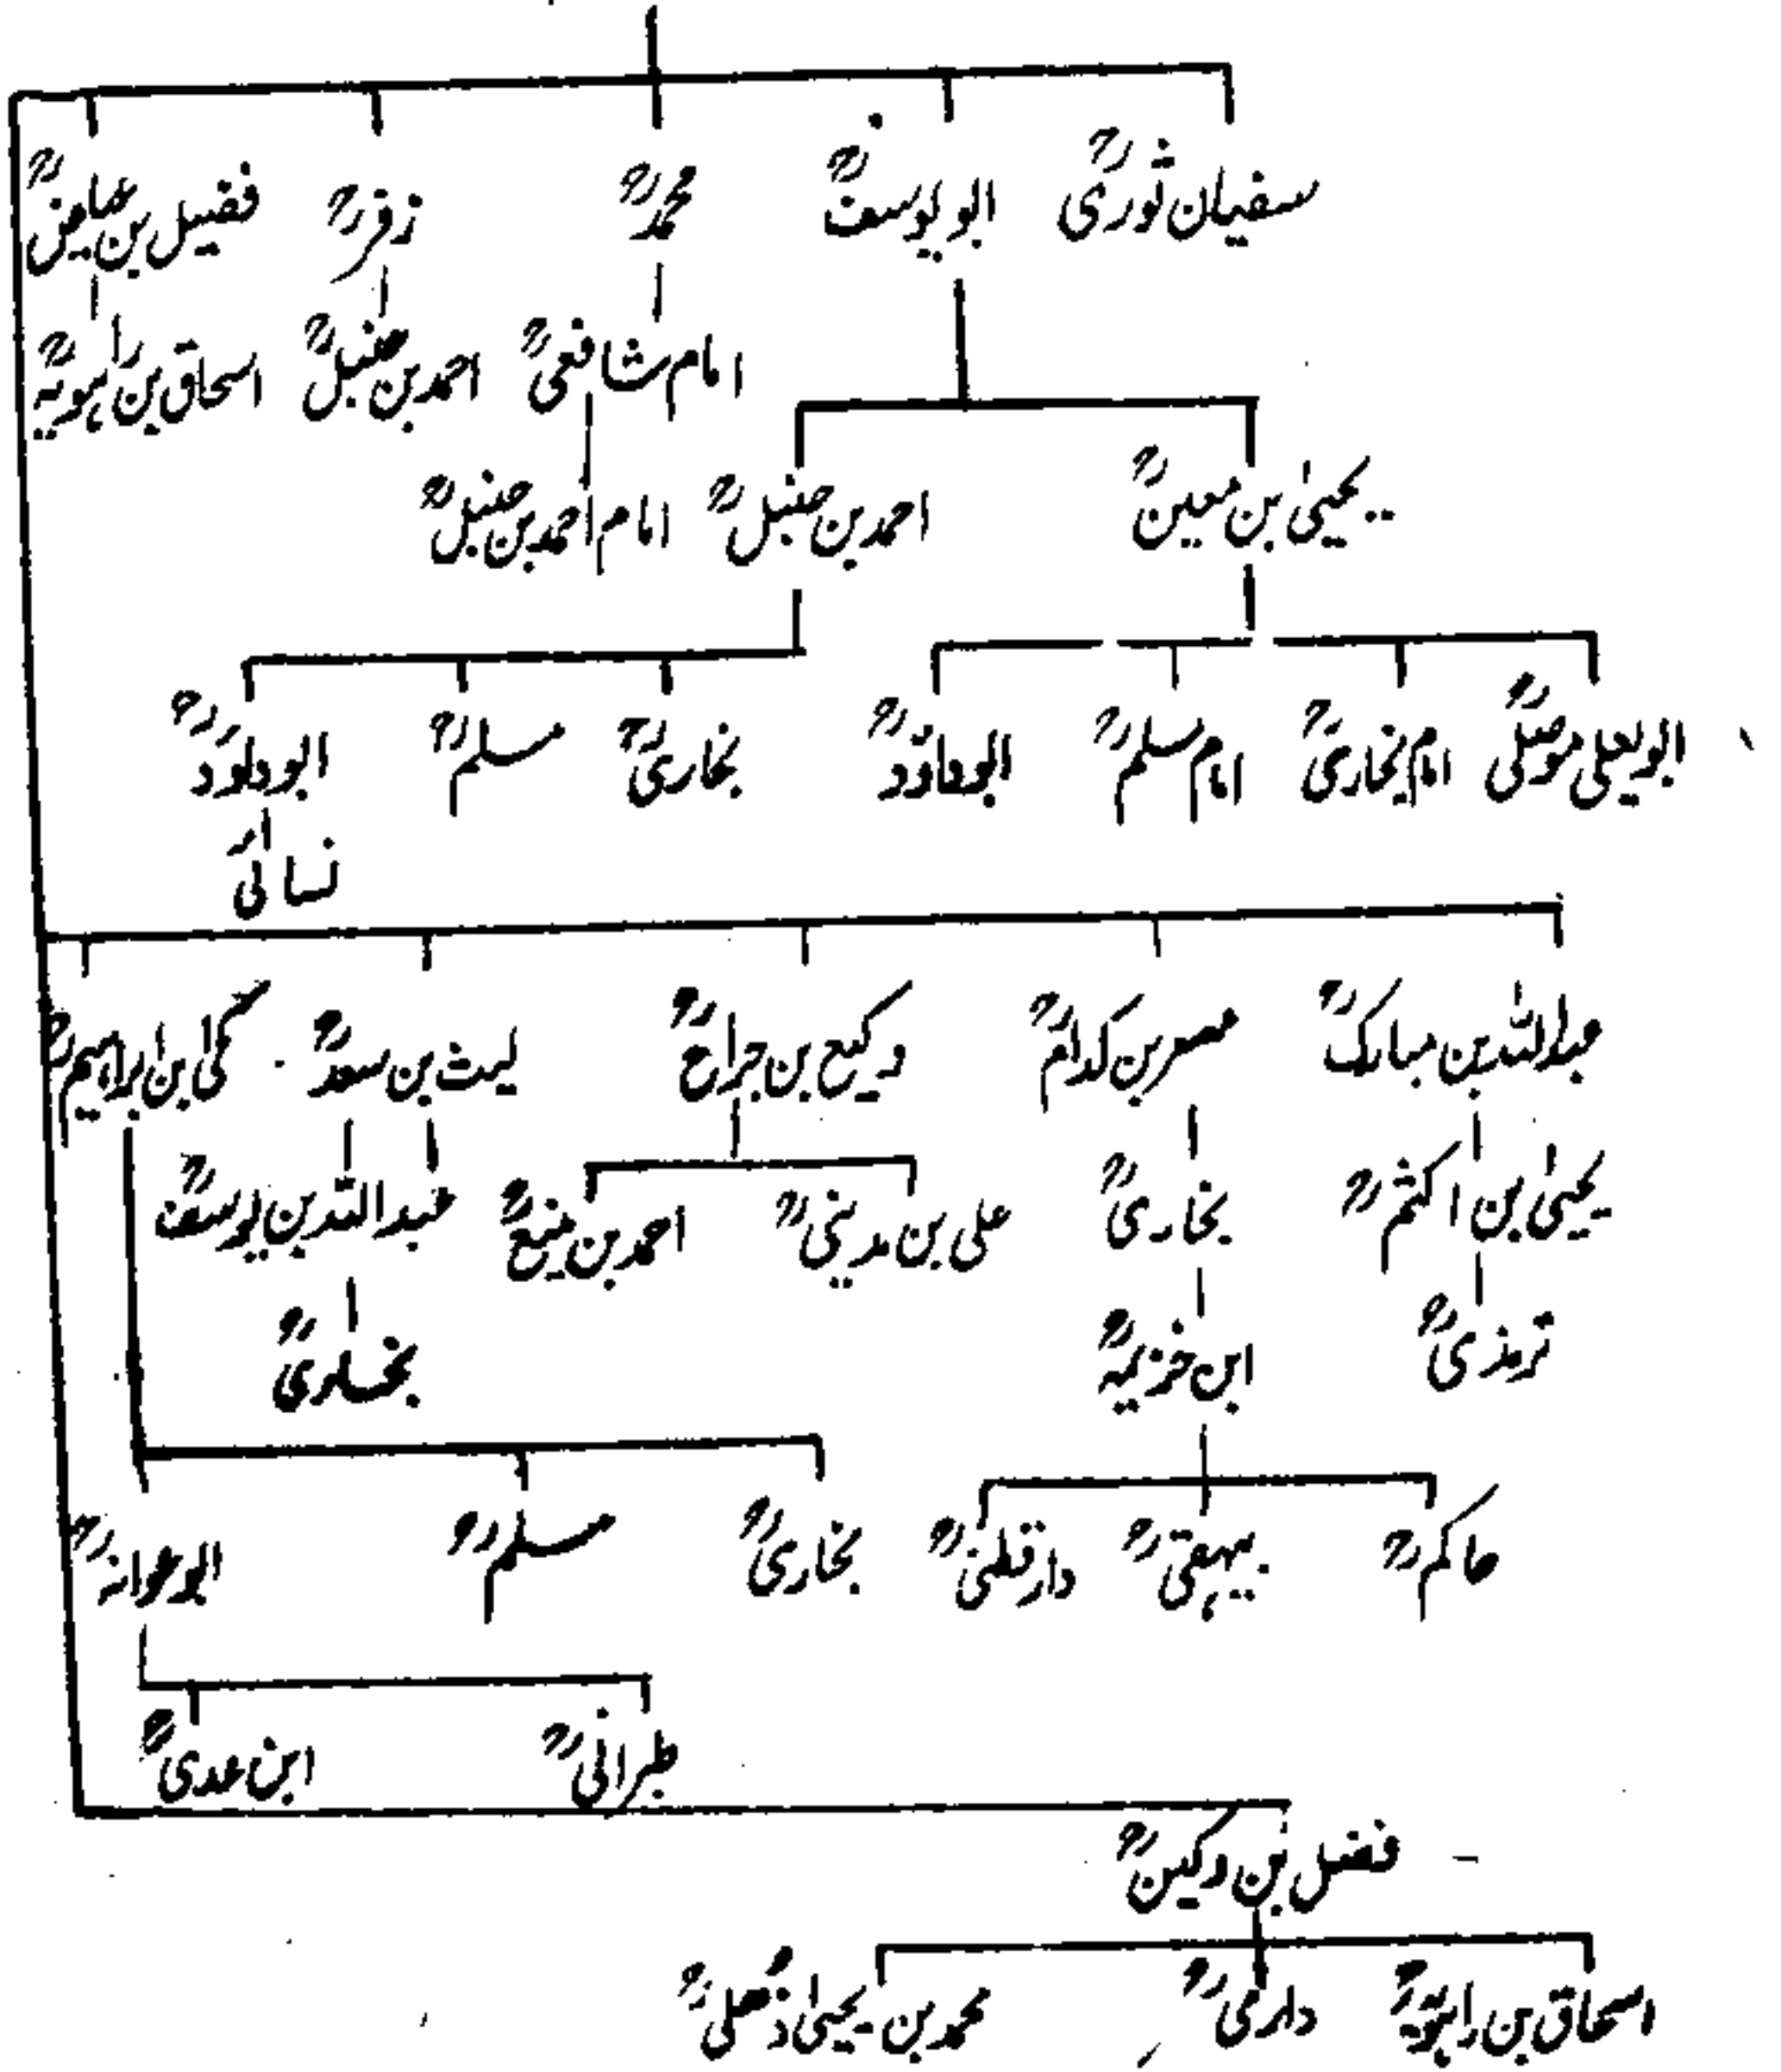 سفیان ثوریؒ ابو یوسفؒ محمدؒ زفرؒ فضیل بن عیاضؒ
امام شافعیؒ احمد بن حنبلؒ اسحاق بن راہویہؒ
یحییٰ بن معینؒ احمد بن حنبلؒ امام احمد بن حنبلؒ
ابو یعلی موصلیؒ امام بخاریؒ امام مسلمؒ ابوداؤدؒ بخاریؒ مسلمؒ ابوداؤدؒ
نسائیؒ
عبداللہ بن مبارکؒ مسعر بن کدامؒ وکیع بن جراحؒ لیث بن سعدؒ مکی بن ابراہیمؒ
یحییٰ بن اکثمؒ بخاریؒ علی بن مدینیؒ احمد بن منیعؒ عبداللہ بن یوسفؒ
ترمذیؒ ابن خزیمہؒ بخاریؒ
حاکمؒ بیہقیؒ دارقطنیؒ بخاریؒ مسلمؒ ابوعوانہؒ
طبرانیؒ ابن عدیؒ
فضل بن دکینؒ
اسحاق بن راہویہؒ دارمیؒ محمد بن یحییٰ ذھلیؒ